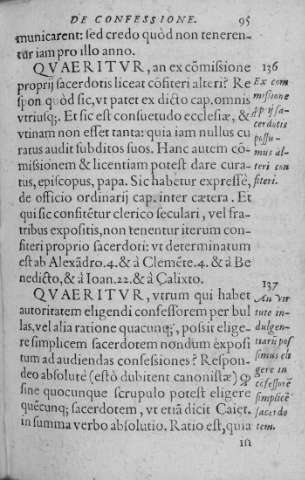 DE CONFESSIONE. 95
municarent: sed credo quòd non tenerentur iam pro illo anno.
QVAERITVR, an ex cōmissione
proprij sacerdotis liceat cōfiteri alteri? Re
spon. quòd sic, vt patet ex dicto cap. omnis
vtriusq;. Et sic est consuetudo ecclesiæ, &
vtinam non esset tanta: quia iam nullus cu
ratus audit subditos suos. Hanc autem cō-
missionem & licentiam potest dare cura-
tus, episcopus, papa. Sic habetur expressé,
de officio ordinarij cap. inter cætera. Et
qui sic confitētur clerico seculari, vel fra-
tribus expositis, non tenentur iterum con-
fiteri proprio sacerdoti: vt determinatum
est ab Alexādro.4. & à Clemēte.4. & à Be
nedicto, & à Ioan.22. & à Calixto.
QVAERITVR, vtrum qui habet
autoritatem eligendi confessorem per bul
las, vel alia ratione quacunq;, possit elige-
re simplicem sacerdotem nondum exposi
tum ad audiendas confessiones? Respon-
deo absoluté (estò dubitent canonistæ) ꝙ
sine quocunque scrupulo potest eligere
quēcunq; sacerdotem, vt etiā dicit Caiet.
in summa verbo absolutio. Ratio est, quia
in
136
Ex com
missione
ꝓprij sa-
cerdotis
possu-
mus al-
teri con
fiteri.
137
An vir
tute in-
dulgen-
tiarū pos
simus eli
gere in
cōfessorē
simplicē
sacerdo
tem.